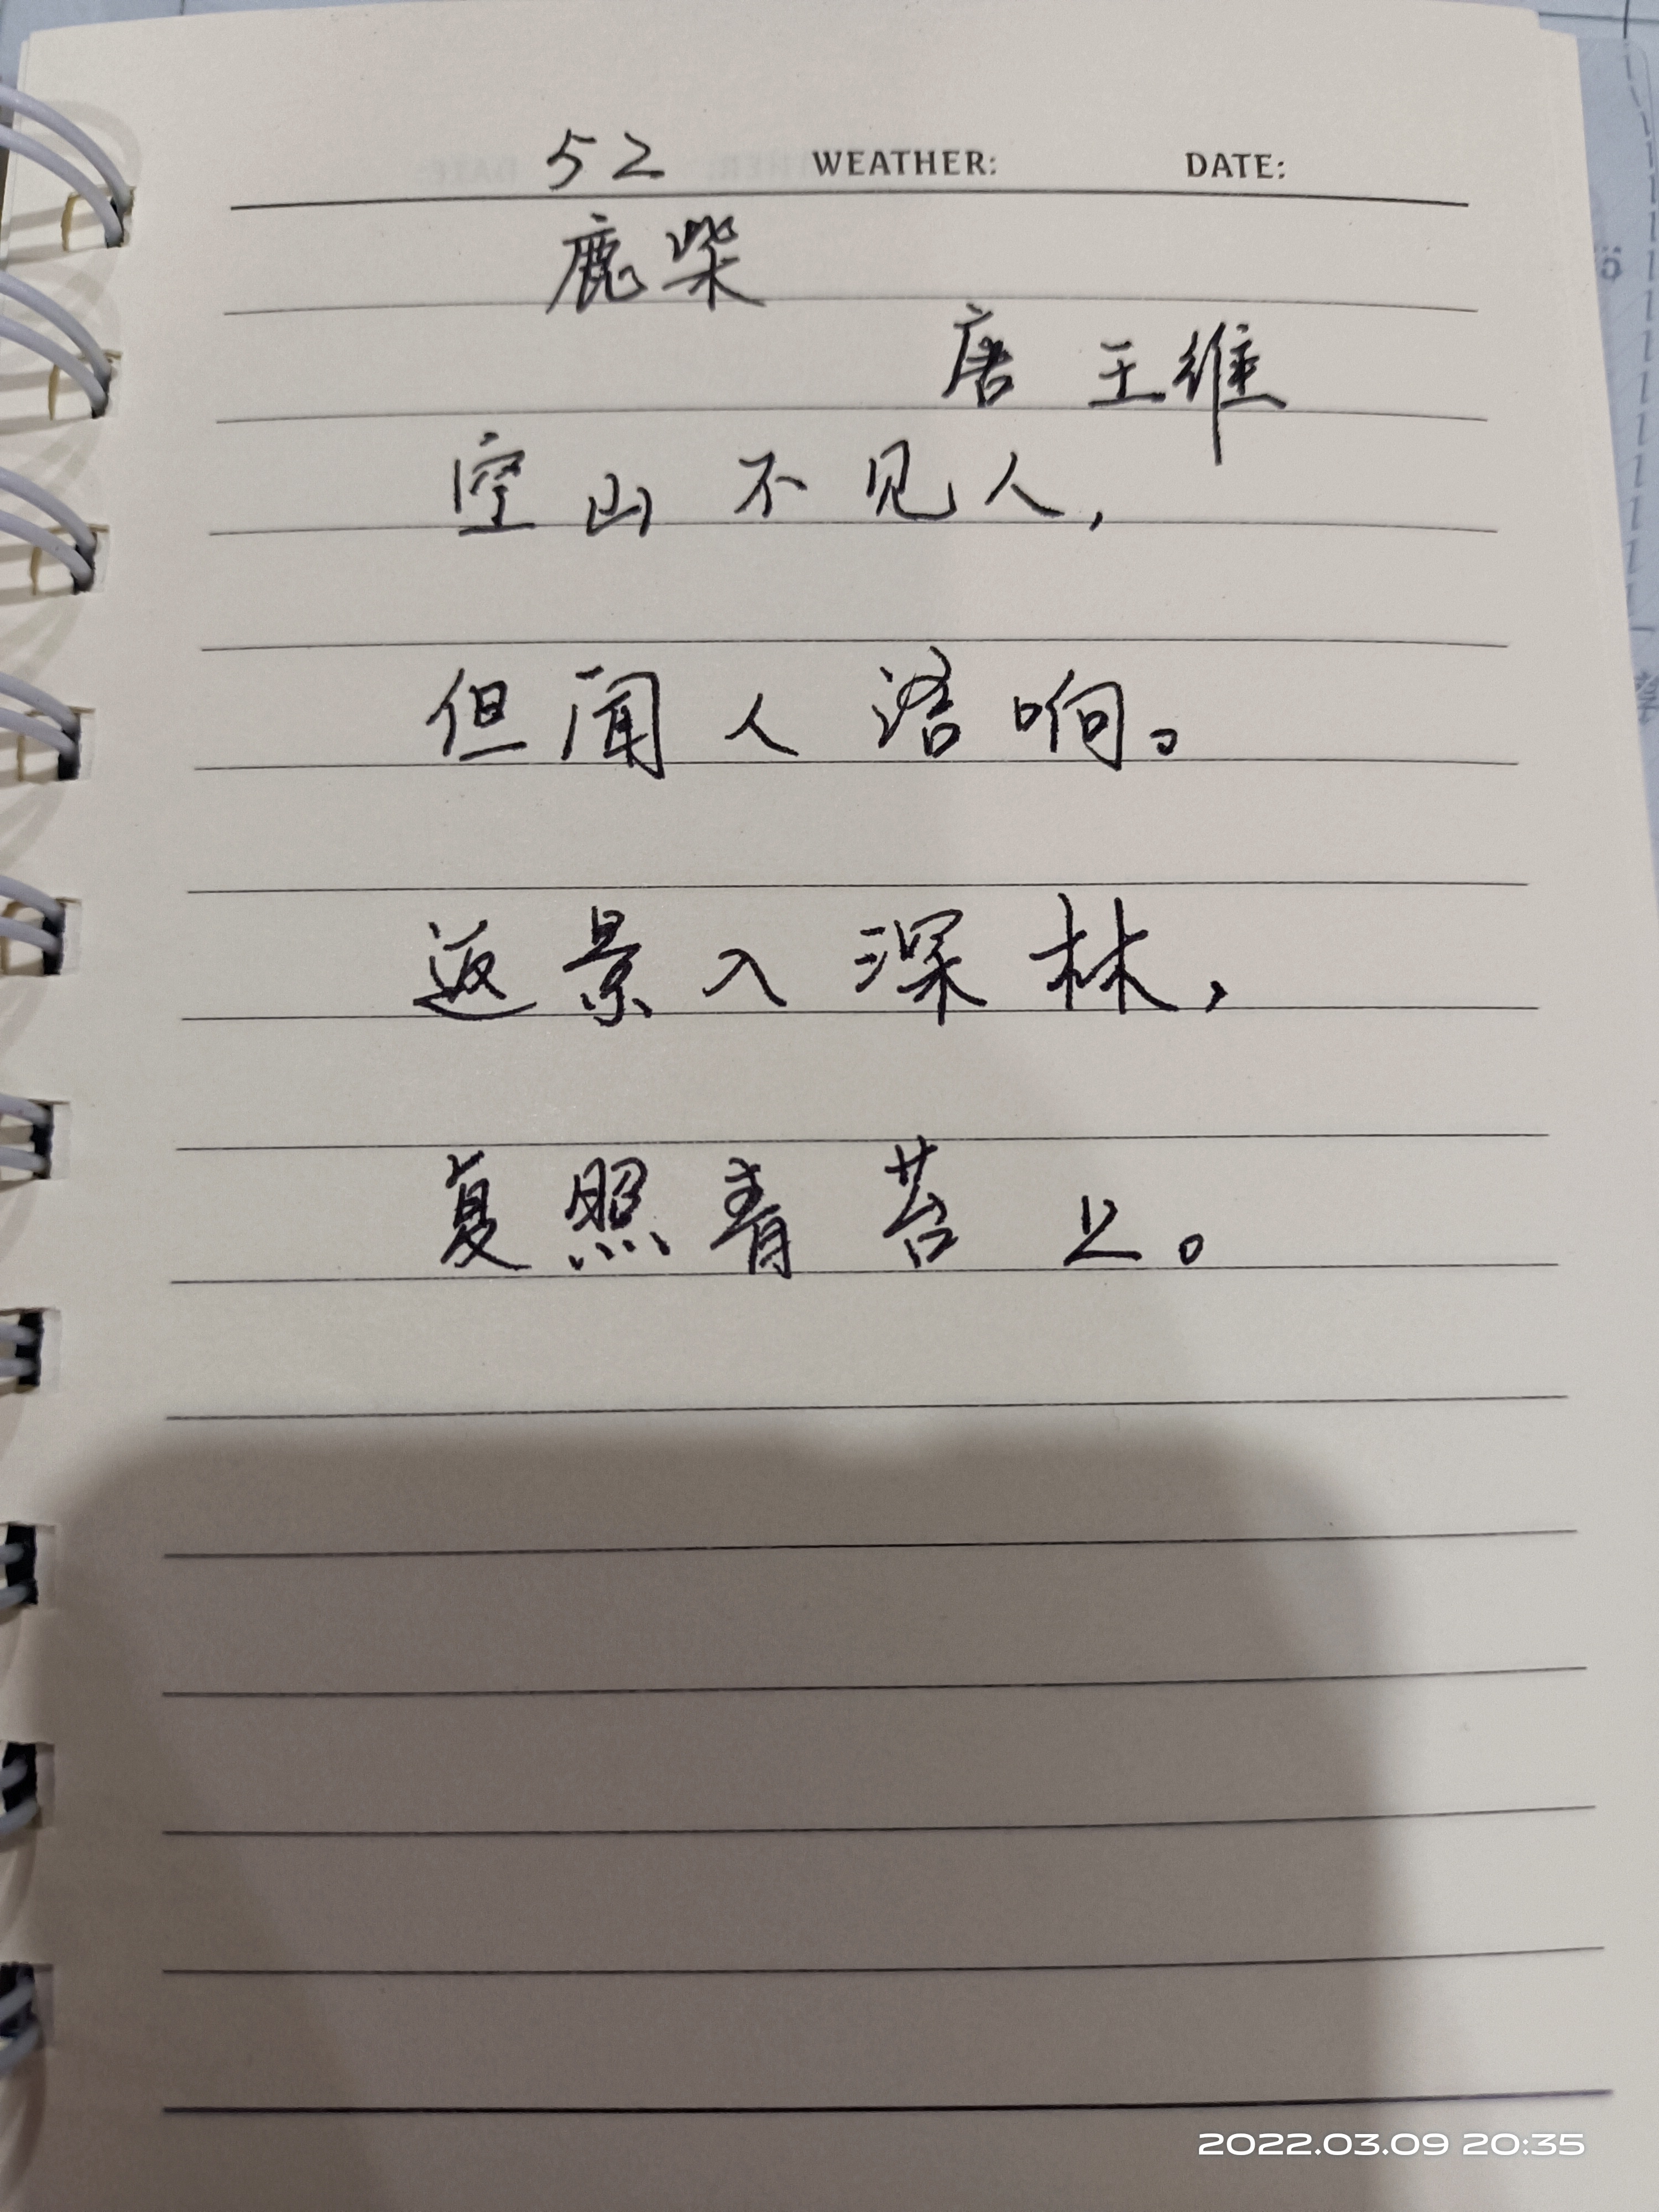 52 WEATHER: DATE:
鹿柴
唐 王维
空山不见人，
但闻人语响。
返景入深林，
复照青苔上。
2022.03.09 20:35